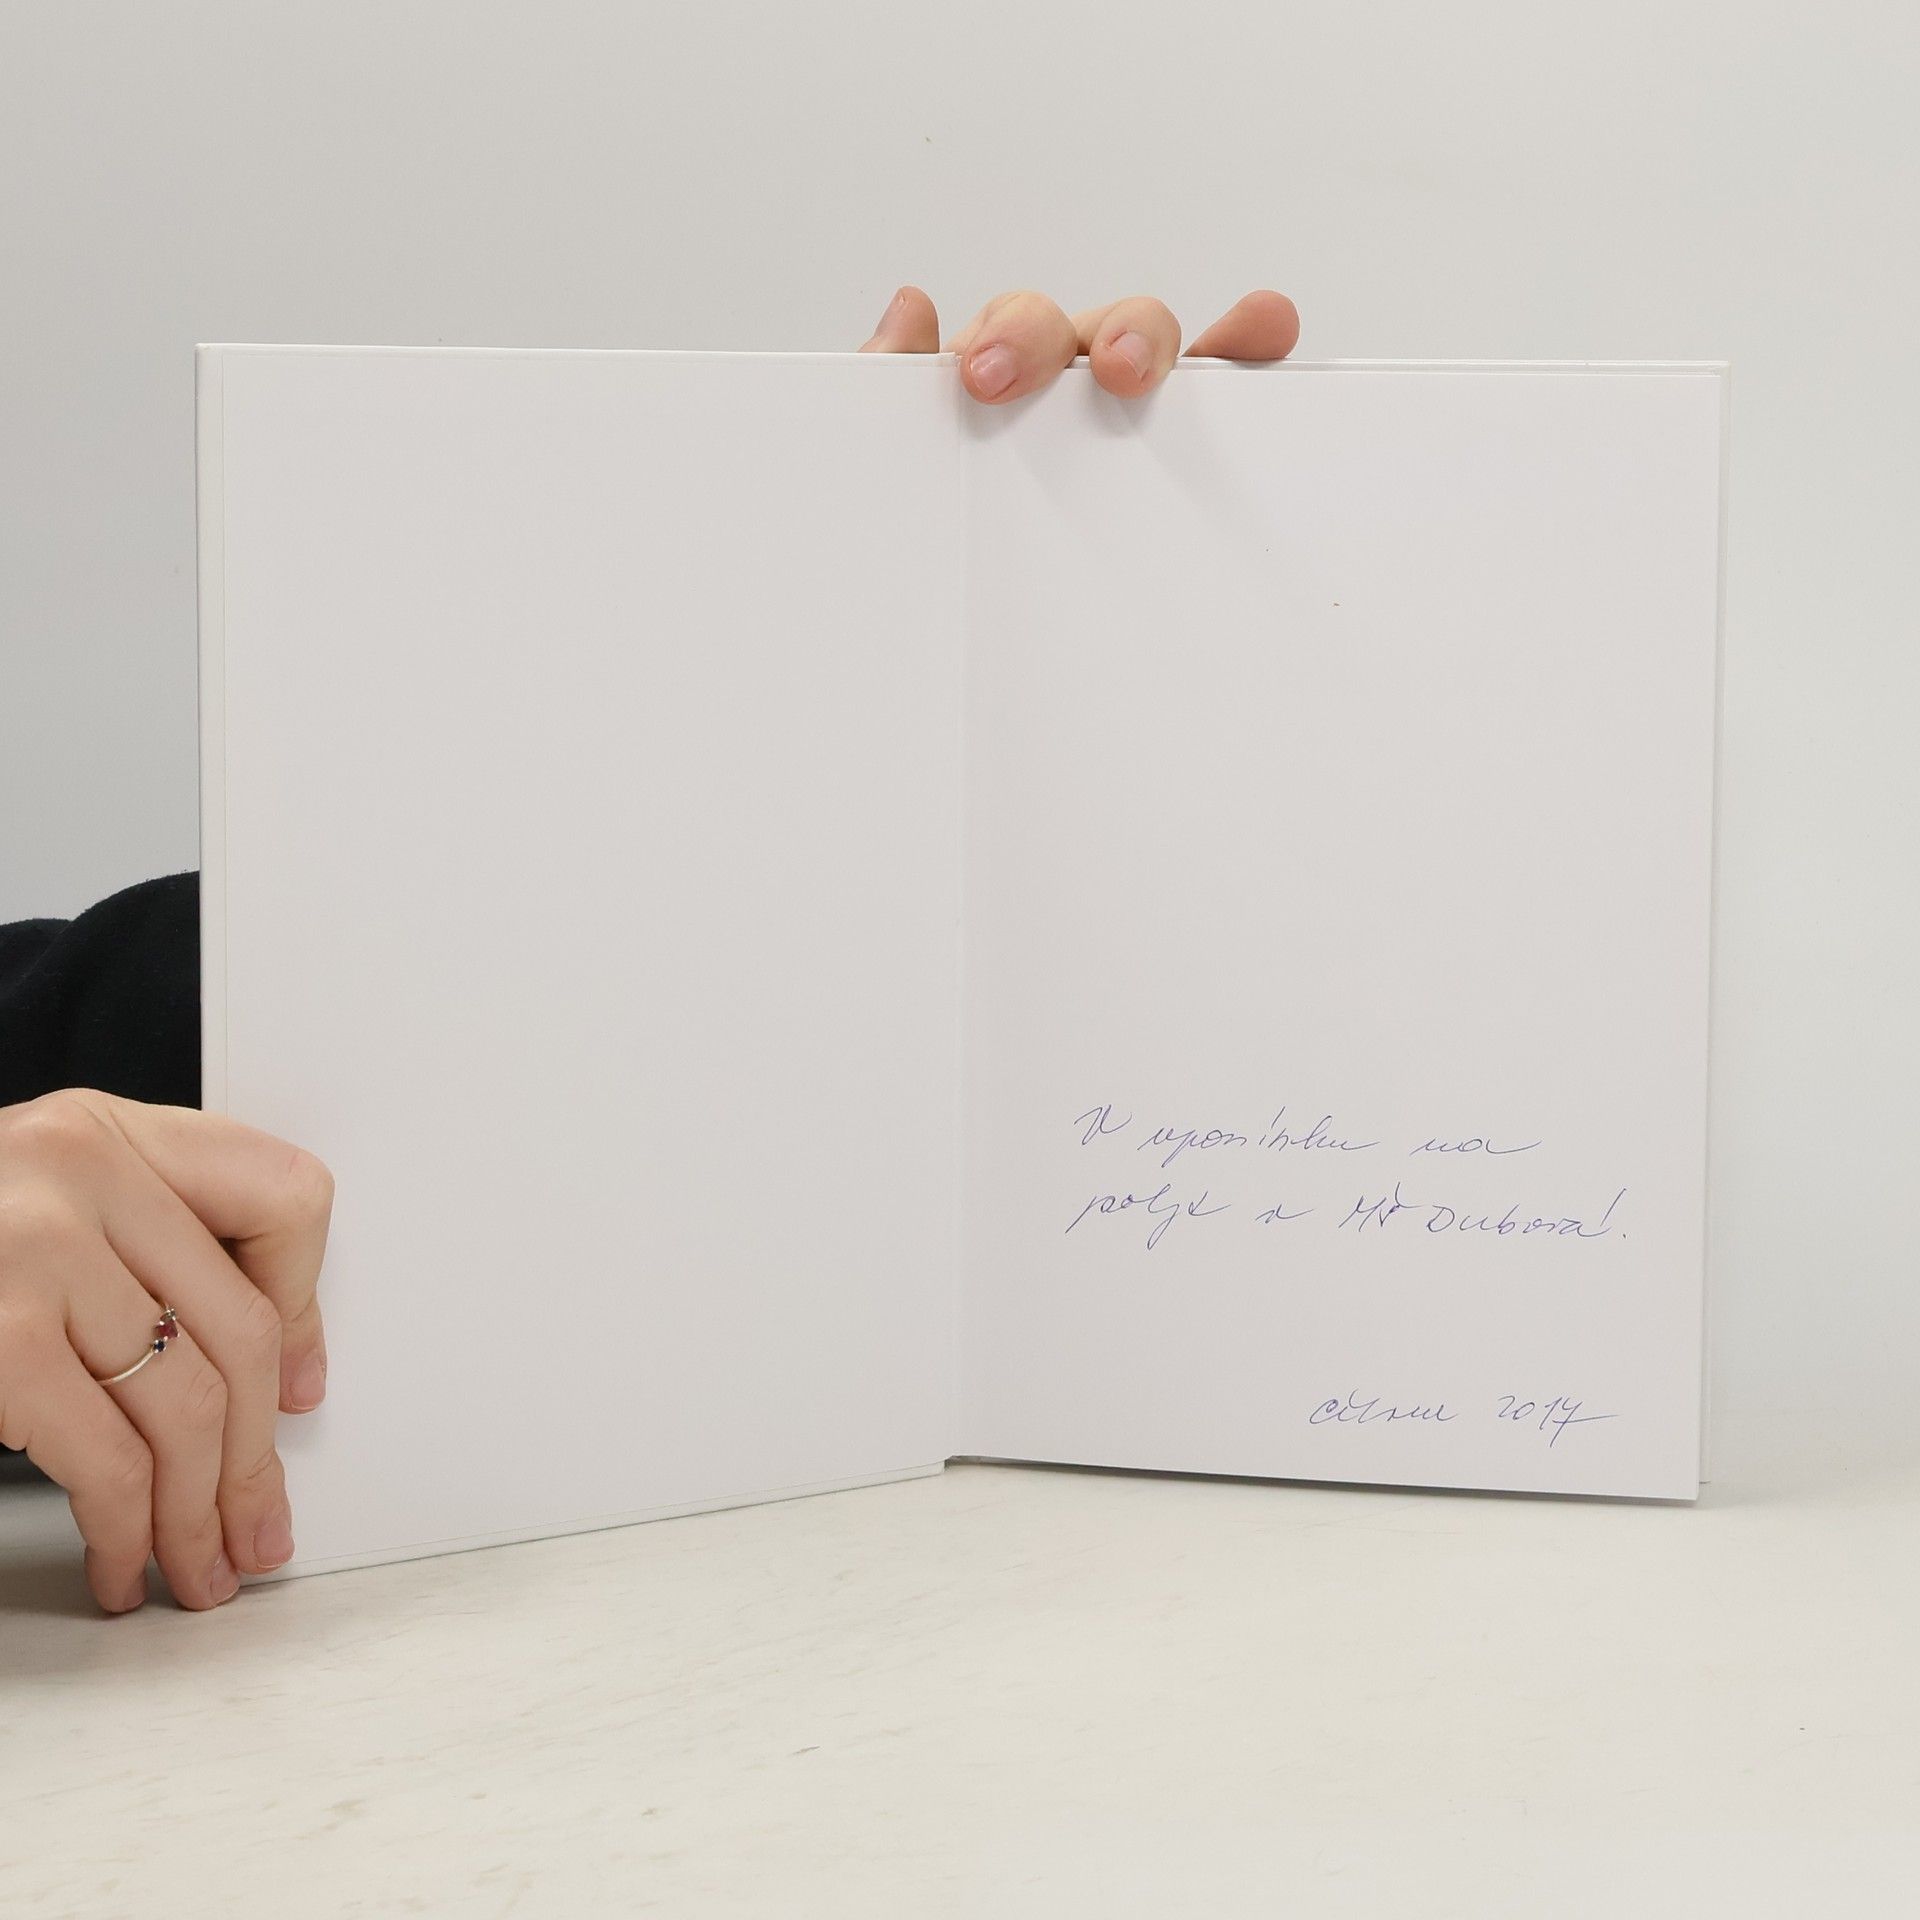 V upomínku na
pobyt v MŠ Dubová.
červen 2017